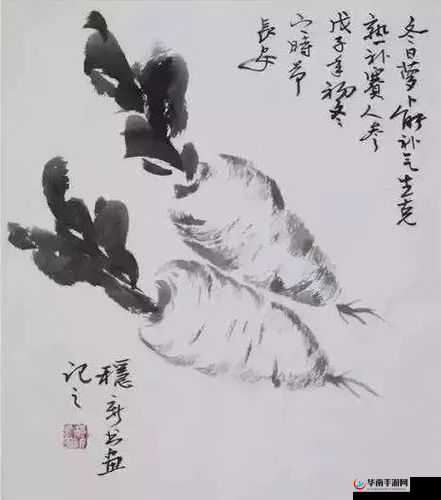 冬日萝卜能补气生克
熟补赛人参
戊子年初冬
六时节
长安
穩新书画
记之
华南手游网